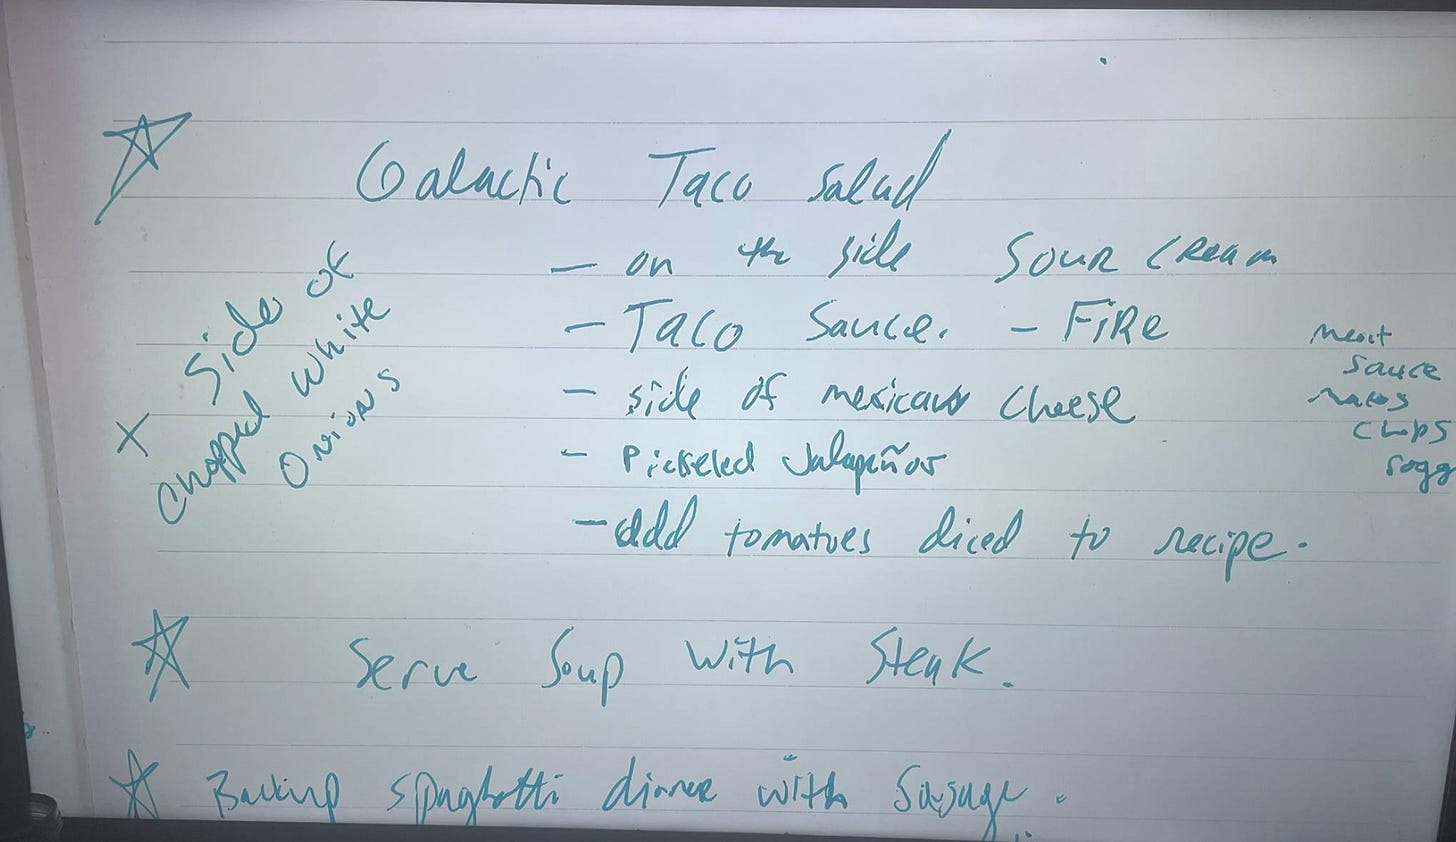 Galactic Taco Salad
- on the side Sour Cream
- Taco Sauce. - FiRe
- side of mexican Cheese
- Pickeled Jalapeños
- add tomatoes diced to recipe.
+ Side of
Chopped White
Onions
Meat
Sauce
makes
Chips
sogg
Serve Soup With Steak.
Backup spaghetti dinner with Sausage.